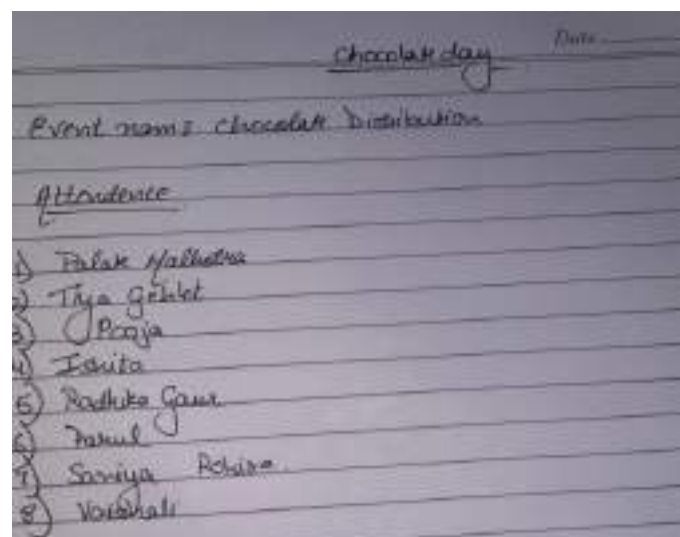 Chocolate day
Date
Event name: Chocolate Distribution
Attendence
1) Palak Malhotra
2) Tiya Gehlot
3) Pooja
4) Ishita
5) Radhika Gaur
6) Parul
7) Saniya
8) Vaishali